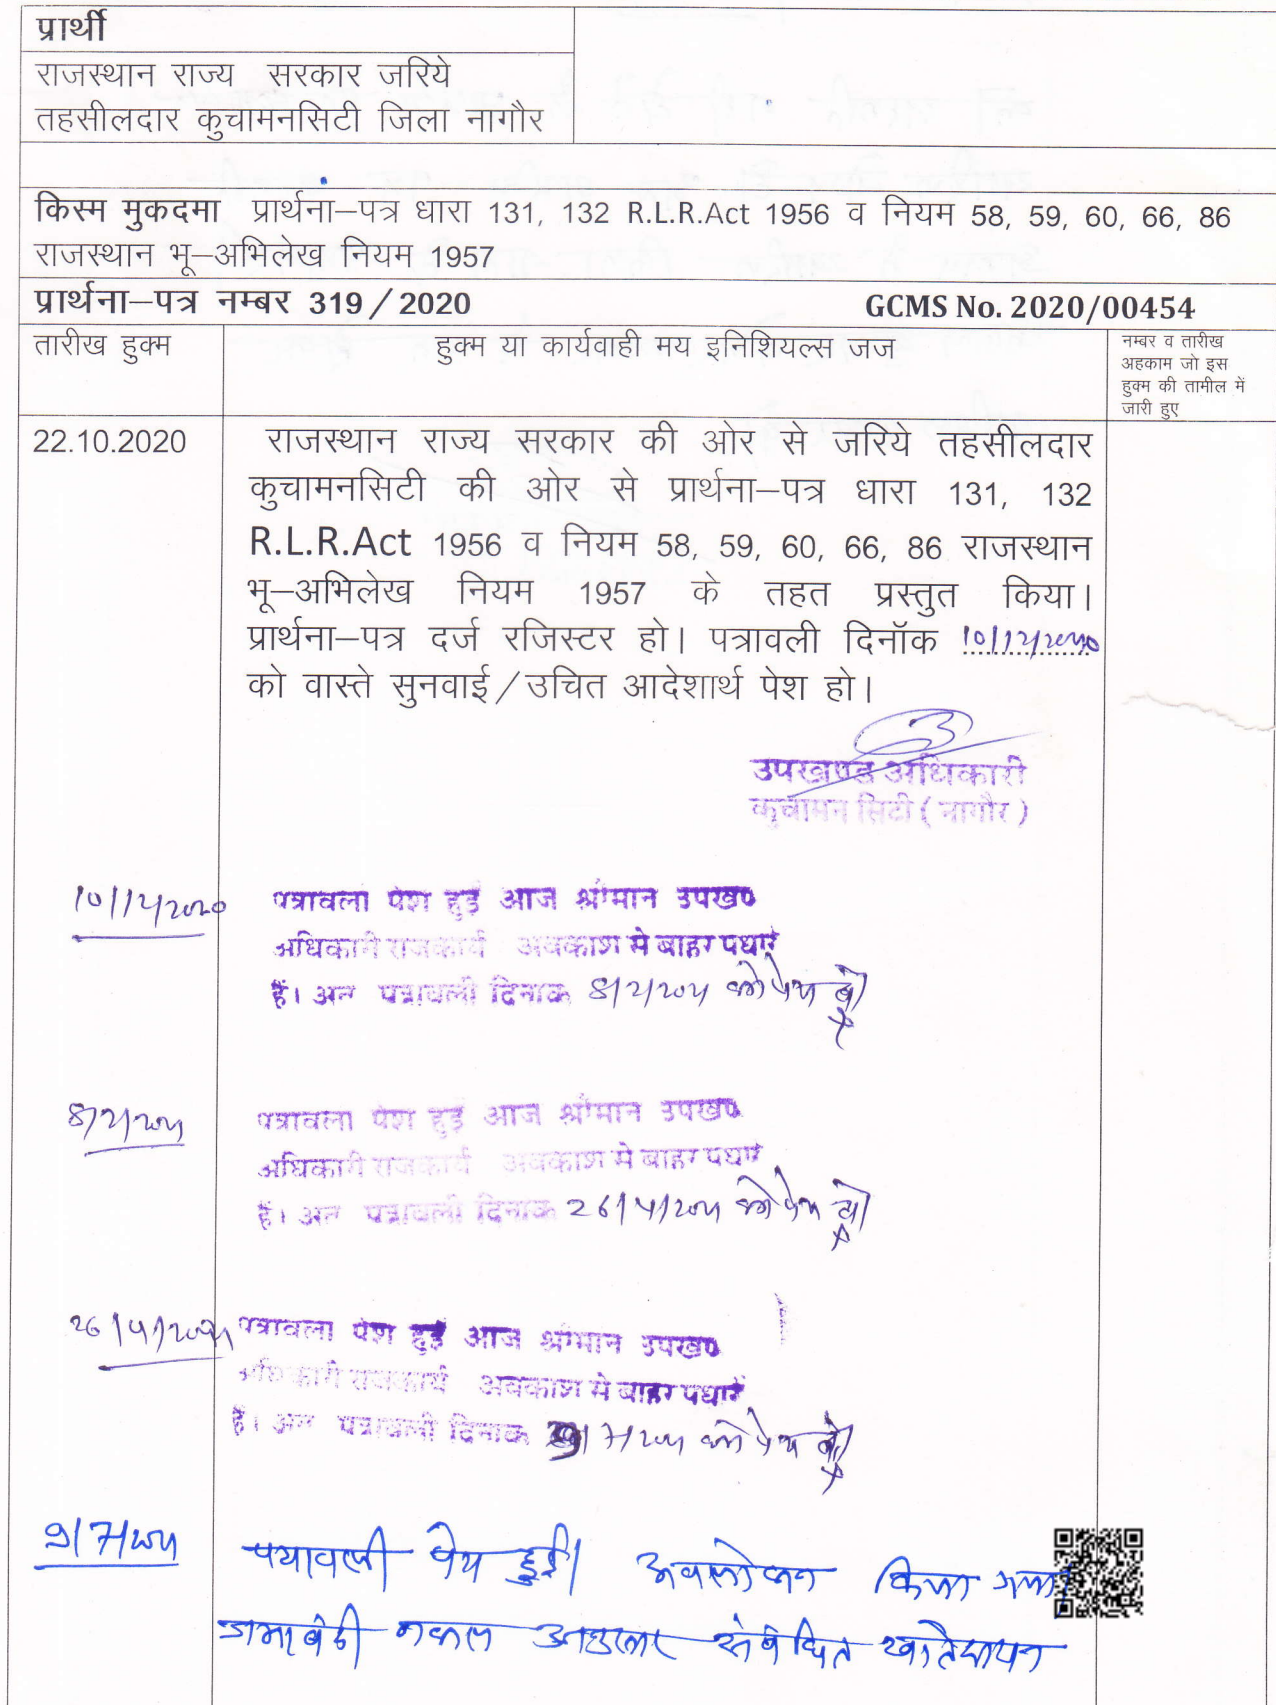 प्रार्थी
राजस्थान राज्य सरकार जरिये
तहसीलदार कुचामनसिटी जिला नागौर
किस्म मुकदमा प्रार्थना–पत्र धारा 131, 132 R.L.R.Act 1956 व नियम 58, 59, 60, 66, 86
राजस्थान भू–अभिलेख नियम 1957
प्रार्थना–पत्र नम्बर 319/2020 GCMS No. 2020/00454
तारीख हुक्म
हुक्म या कार्यवाही मय इनिशियल्स जज
नम्बर व तारीख
अहकाम जो इस
हुक्म की तामील में
जारी हुए
22.10.2020 राजस्थान राज्य सरकार की ओर से जरिये तहसीलदार
कुचामनसिटी की ओर से प्रार्थना–पत्र धारा 131, 132
R.L.R.Act 1956 व नियम 58, 59, 60, 66, 86 राजस्थान
भू–अभिलेख नियम 1957 के तहत प्रस्तुत किया।
प्रार्थना–पत्र दर्ज रजिस्टर हो। पत्रावली दिनॉक 10/12/2020
को वास्ते सुनवाई/उचित आदेशार्थ पेश हो।
उपखण्ड अधिकारी
कुचामन सिटी (नागौर)
10/12/2020 पत्रावली पेश हुई आज श्रीमान उपखण्ड
अधिकारी राजकार्य अवकाश मे बाहर पधारे
हैं। अतः पत्रावली दिनांक 8/2/2021 को पेश हो
8/2/2021 पत्रावली पेश हुई आज श्रीमान उपखण्ड
अधिकारी राजकार्य अवकाश मे बाहर पधारे
हैं। अतः पत्रावली दिनांक 26/4/2021 को पेश हो
26/4/2021 पत्रावली पेश हुई आज श्रीमान उपखण्ड
अधिकारी राजकार्य अवकाश मे बाहर पधारे
हैं। अतः पत्रावली दिनांक 9/7/2021 को पेश हो
9/7/2021 पत्रावली पेश हुई। अवलोकन किया गया।
जमाबंदी नकल अनुसार संबंधित खातेदारान